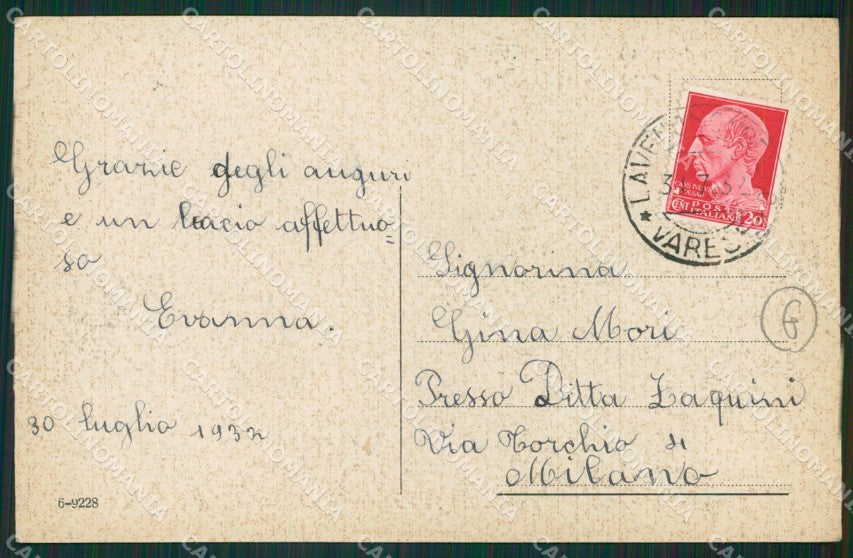 Grazie degli auguri
e un bacio affettuo=
so
Evanna.
30 luglio 1932
6-9228
LAVENO
VARESE
POSTE
ITALIANE
CENT 20
Signorina
Gina Mori
Presso Ditta Zaquini
Via Torchio
Milano
CARTOLINOMANIA